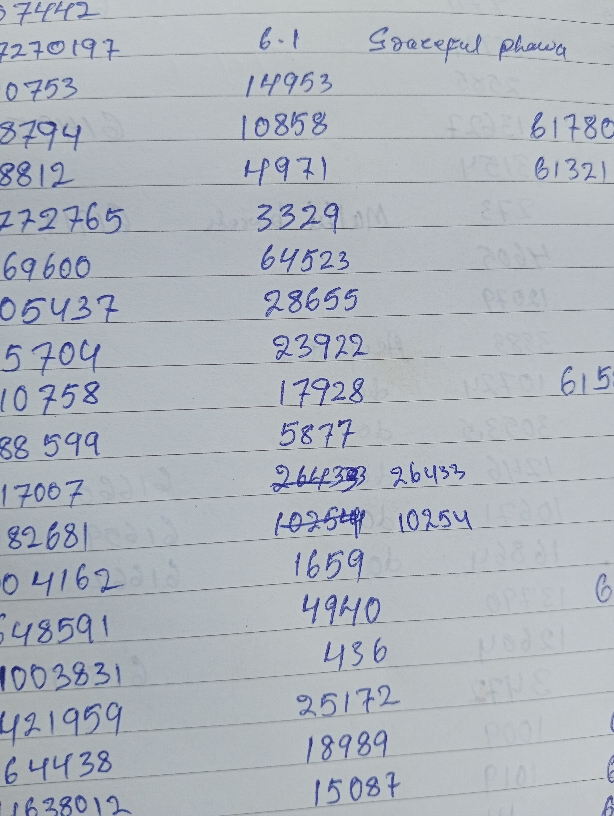 07442
7270197 6.1
0753 14953
8794 10858 61780
8812 4971 61321
772765 3329
69600 64523
05437 28655
5704 23922
10758 17928 615
88599 5877
17007 26433 26433
82681 10254 10254
04162 1659
648591 4940 6
1003831 436
421959 25172
64438 18989
4638012 15087